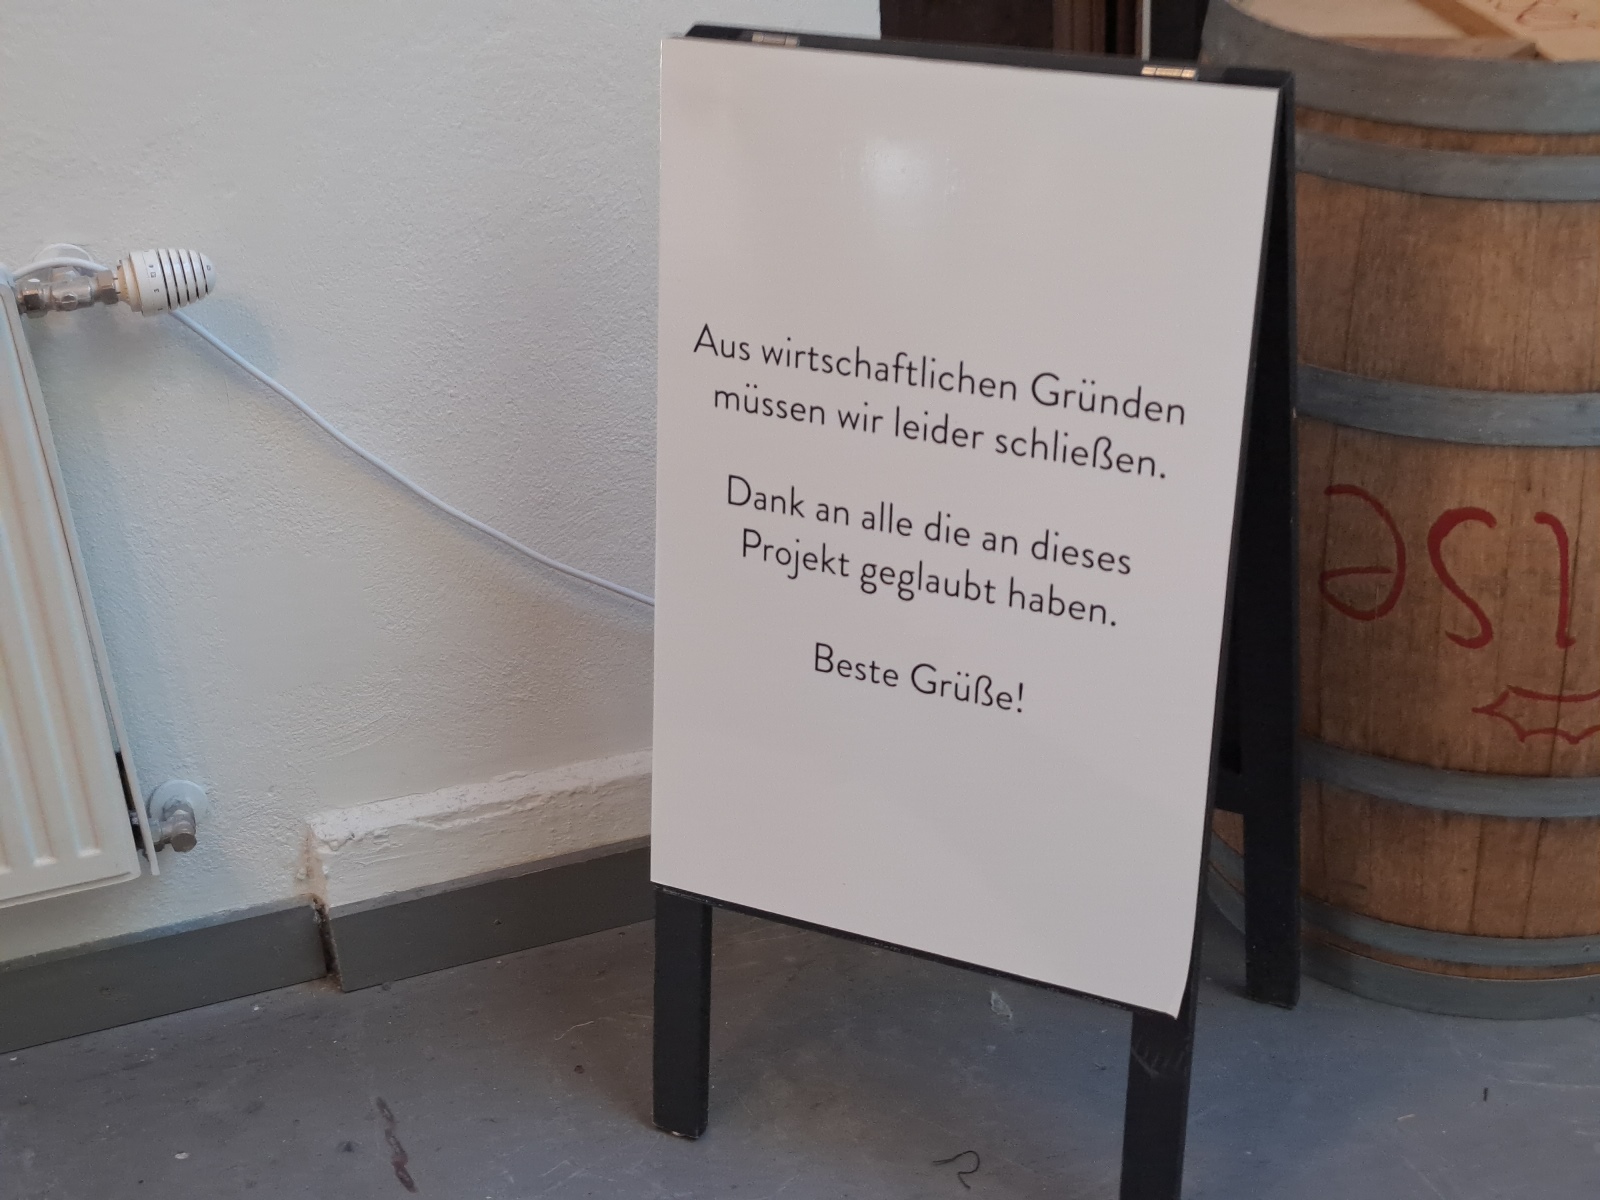 Aus wirtschaftlichen Gründen
müssen wir leider schließen.
Dank an alle die an dieses
Projekt geglaubt haben.
Beste Grüße!